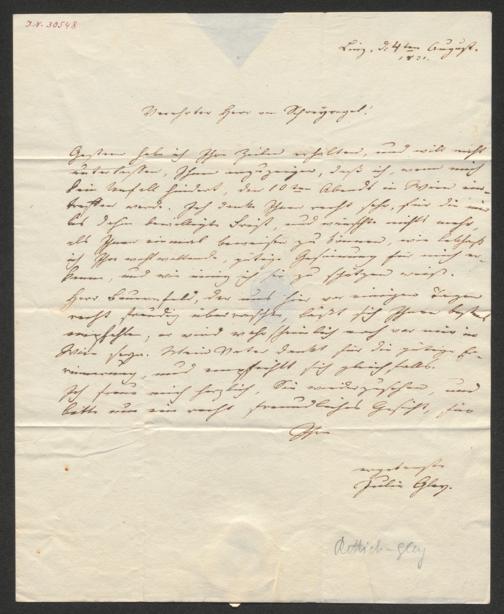 I.N. 30548
Linz, d. 4ten August.
1831.
Verehrter Herr von Schreyvogel!
Gestern hab ich Ihre Zeilen erhalten, und will nicht
unterlassen, Ihnen anzuzeigen, daß ich, wenn mich
kein Unfall hindert, den 10ten Abends in Wien ein-
treffen werde. Ich danke Ihnen recht sehr, für die mir
bis dahin bewilligte Frist, und wünsche nichts mehr,
als Ihnen einmal beweisen zu können, wie
ich Ihre wohlwollende, gütige Gesinnung für mich er-
kenne, und wie innig ich sie zu schätzen weiß.
Herr Bauernfeld, der uns hier vor einigen Tagen
recht freudig überraschte, läßt sich Ihnen bestens
empfehlen, er wird wahrscheinlich noch vor mir in
Wien seyn. Mein Vater dankt für die gütige Er-
innerung, und empfiehlt sich gleichfalls.
Ich freue mich herzlich, Sie wiederzusehen, und
bitte um ein recht freundliches Gesicht, für
Ihre
ergebenste
Julie Gley.
Rettich-Gley